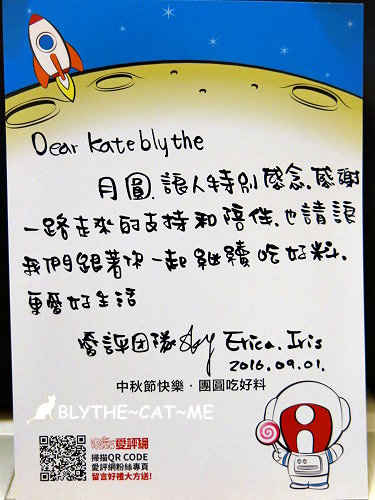 Dear kateblythe
月圓.讓人特別感念.感謝
一路走來的支持和陪伴.也請讓
我們跟著你一起繼續吃好料.
更愛好生活
愛評团隊 Erica.Iris
2016.09.01.
中秋節快樂・團圓吃好料
BLYTHE~CAT~ME
愛評網
掃描QR CODE
愛評網粉絲專頁
留言好禮大方送!